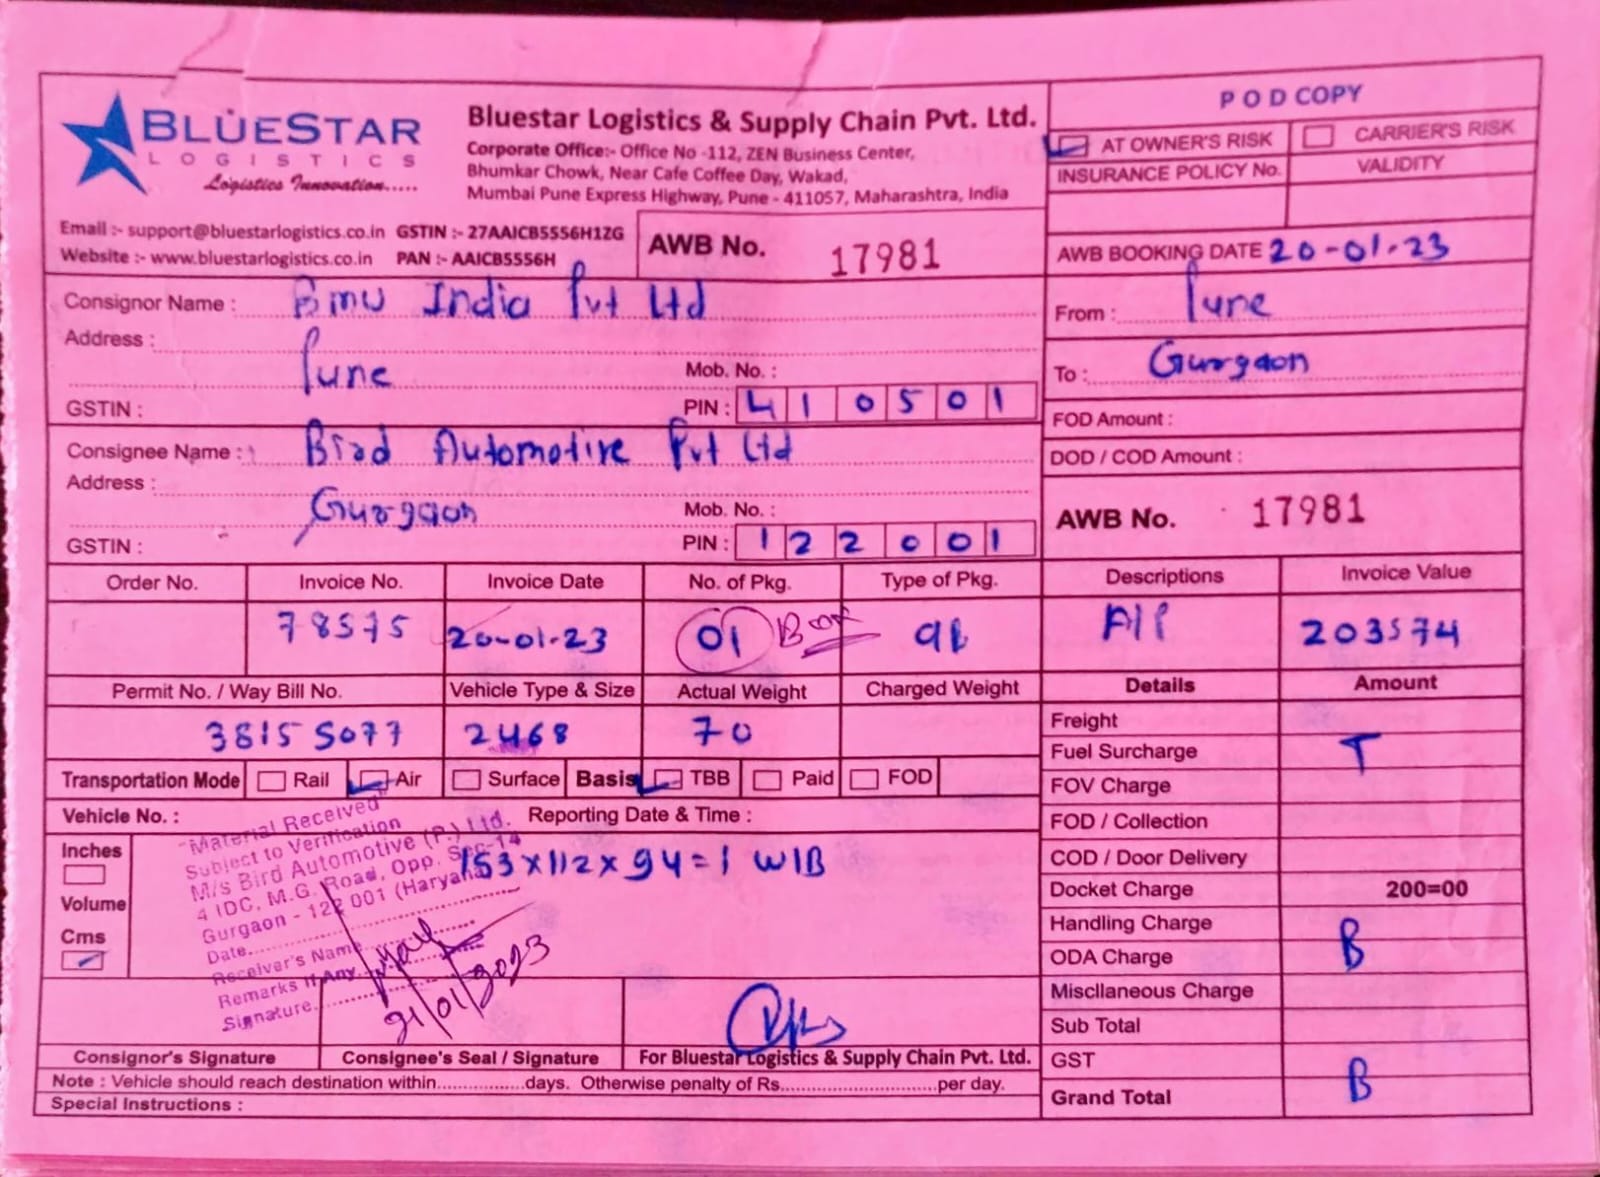 BLUESTAR
LOGISTICS
Logistics Innovation.....
Bluestar Logistics & Supply Chain Pvt. Ltd.
Corporate Office:- Office No -112, ZEN Business Center,
Bhumkar Chowk, Near Cafe Coffee Day, Wakad,
Mumbai Pune Express Highway, Pune - 411057, Maharashtra, India
Email :- support@bluestarlogistics.co.in GSTIN :- 27AAICB5556H1ZG
Website :- www.bluestarlogistics.co.in PAN :- AAICB5556H
AWB No. 17981
POD COPY
AT OWNER'S RISK CARRIER'S RISK
INSURANCE POLICY No. VALIDITY
AWB BOOKING DATE 20-01-23
From : Pune
To : Gurgaon
FOD Amount :
DOD / COD Amount :
AWB No. 17981
Consignor Name : Bmw India Pvt Ltd
Address :
Pune
Mob. No. :
GSTIN : PIN : 410501
Consignee Name : Brad Automotive Pvt Ltd
Address :
Gurgaon
Mob. No. :
GSTIN : PIN : 122001
Order No. Invoice No. Invoice Date No. of Pkg. Type of Pkg. Descriptions Invoice Value
78575 20-01-23 01 Box A/P 203574
Permit No. / Way Bill No. Vehicle Type & Size Actual Weight Charged Weight
38155077 2468 70
Transportation Mode Rail Air Surface Basis TBB Paid FOD
Vehicle No. : Reporting Date & Time :
Inches
Volume
Cms
153x112x94=1 WIB
"Material Received"
Subject to Verification
M/s Bird Automotive (P.) Ltd.
4 IDC, M.G. Road, Opp. Sec-14
Gurgaon - 122 001 (Haryana
Date
Receiver's Name
Remarks If Any
Signature
21/01/2023
Consignor's Signature Consignee's Seal / Signature For Bluestar Logistics & Supply Chain Pvt. Ltd.
Note : Vehicle should reach destination within................days. Otherwise penalty of Rs............................per day.
Special Instructions :
Details Amount
Freight
Fuel Surcharge T
FOV Charge
FOD / Collection
COD / Door Delivery
Docket Charge 200=00
Handling Charge
ODA Charge B
Miscllaneous Charge
Sub Total
GST
Grand Total B